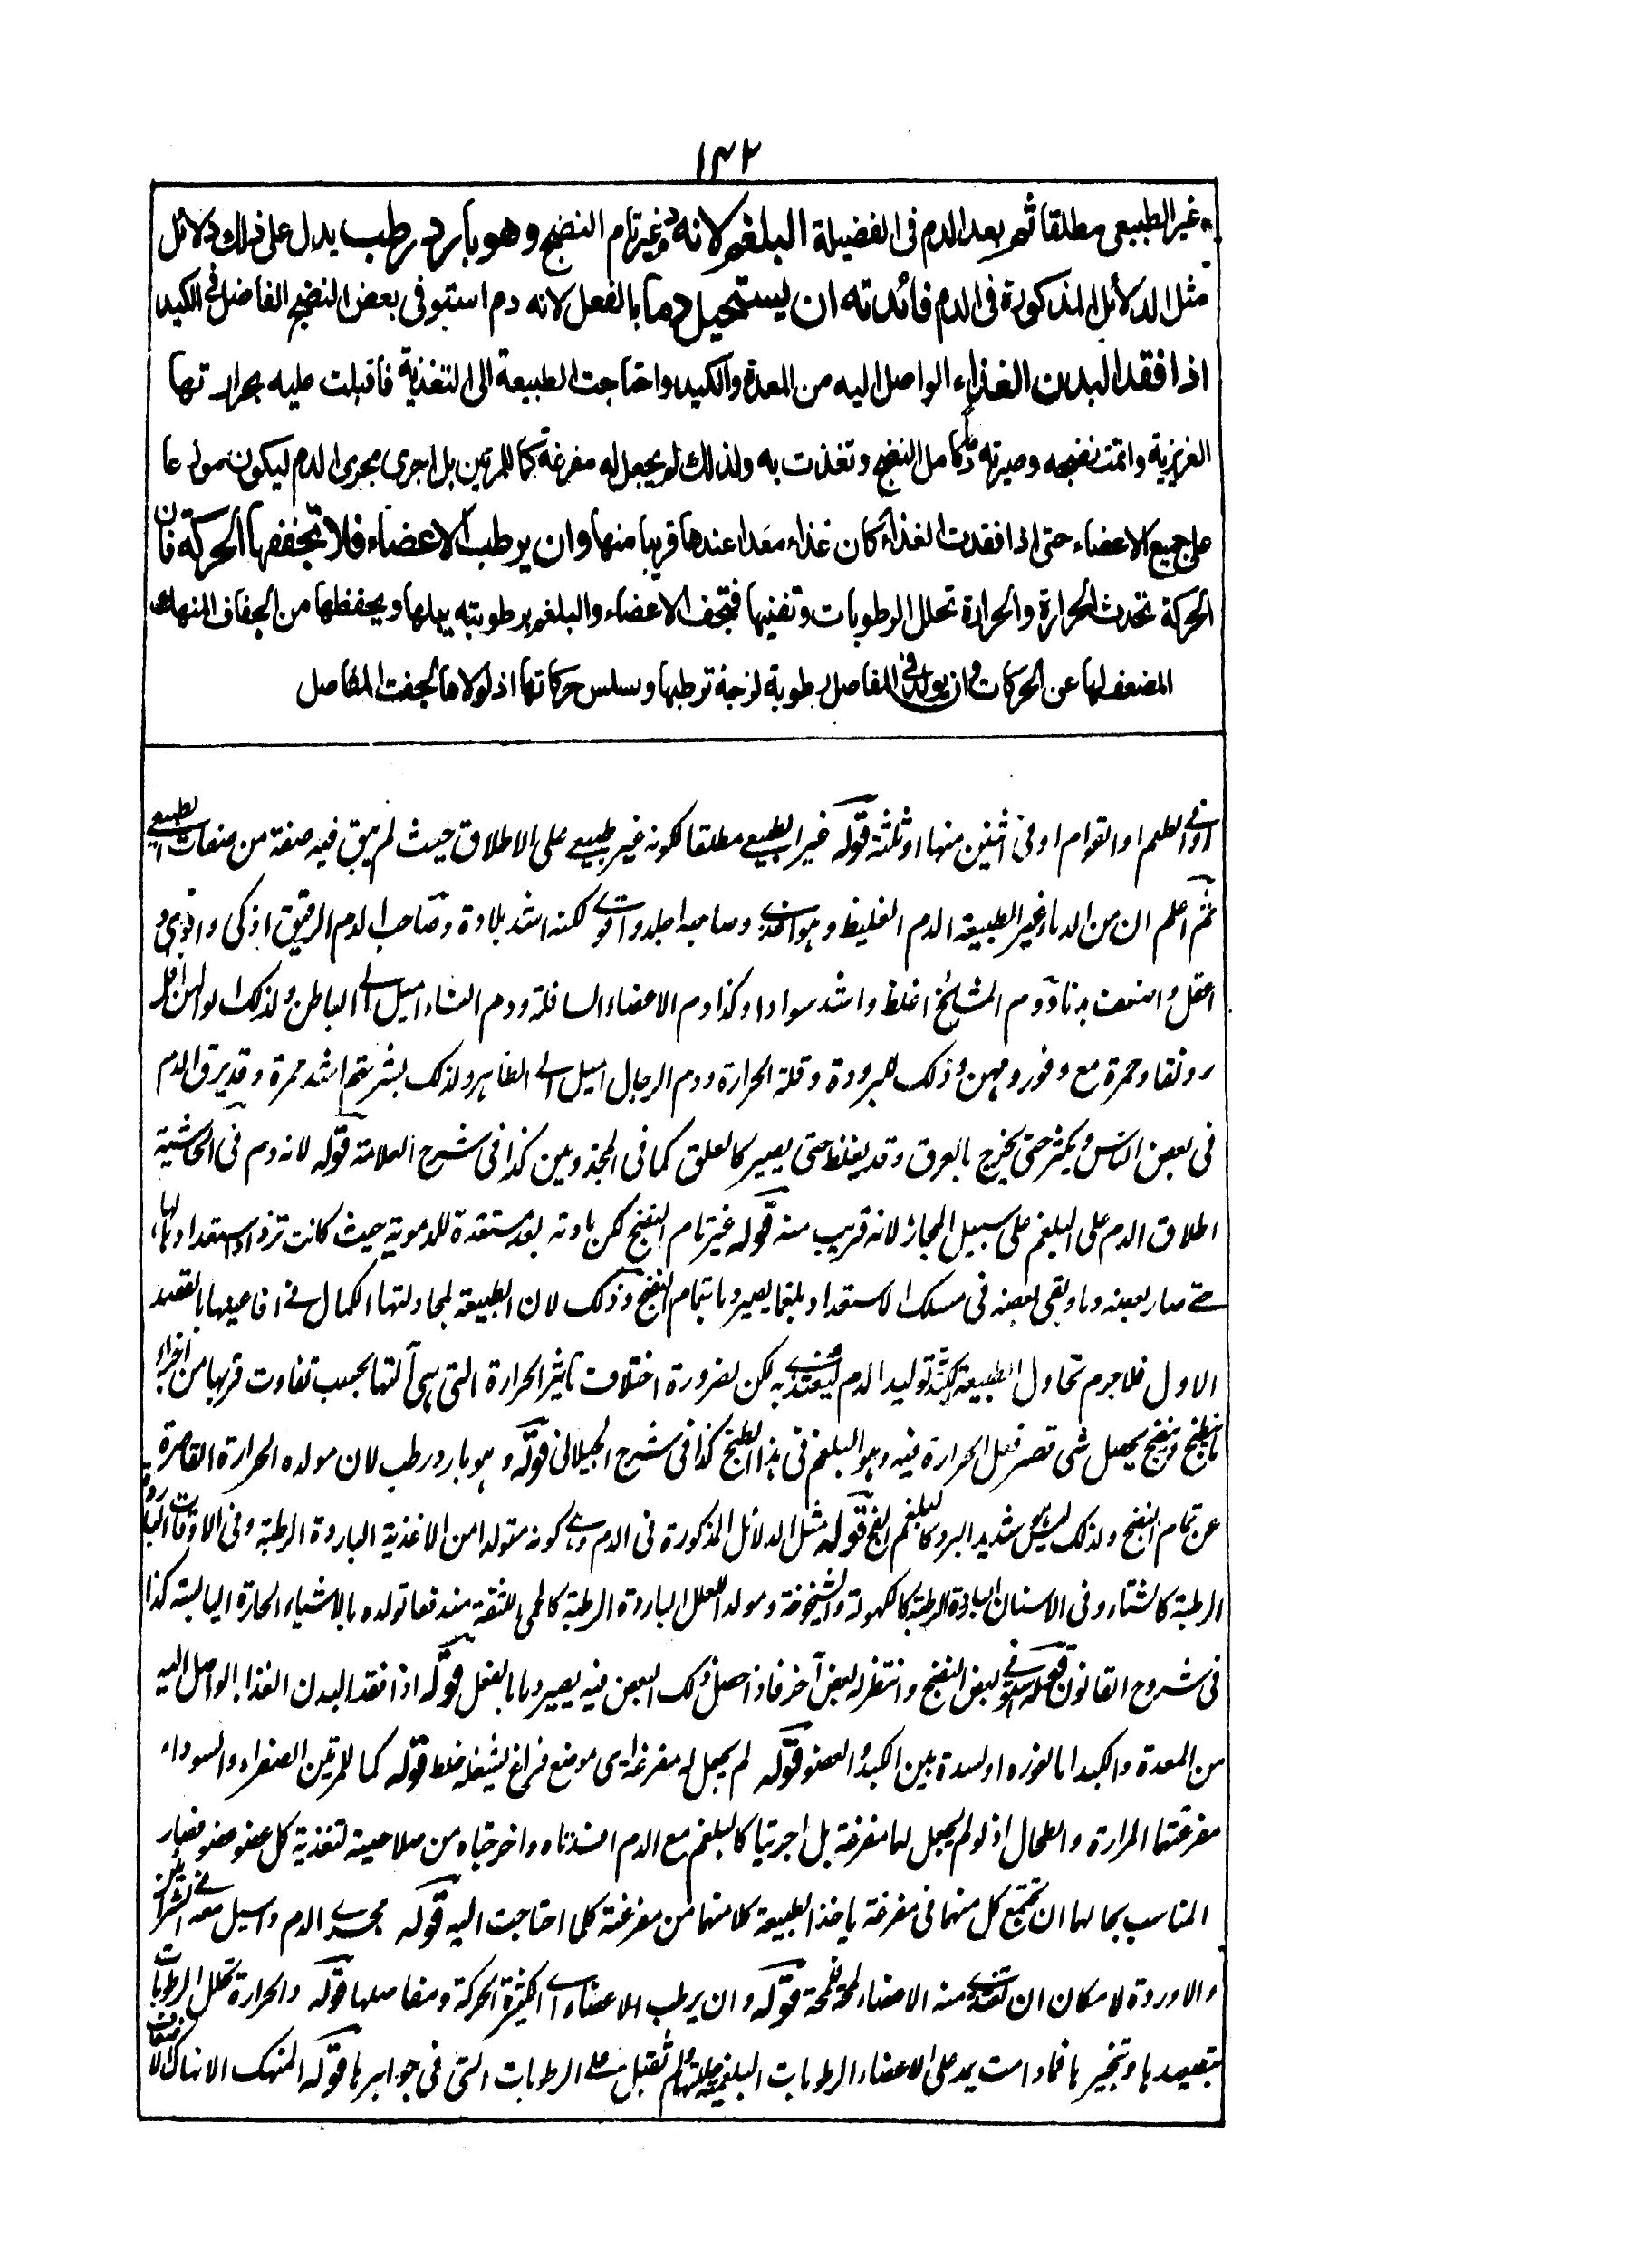 ١٤٢
غير الطبيعي مطلقا ثم بعد الدم في الفضيلة البلغم لانه دم غير تام النضج وهو بارد رطب يدل على ذلك دلائل
مثل الدلائل المذكورة في الدم فائدته ان يستحيل دما بالفعل لانه دم استوفى بعض النضج الفاضل في الكبد
اذا فقد البدن الغذاء الواصل اليه من المعدة والكبد واحتاجت الطبيعة الى التغذية فاقبلت عليه بحرارتها
الغريزية واتمت نضجه وصيرته دما كامل النضج وتغذت به ولذلك لم يجعل له مفرغة كما للمرتين بل اجرى مجرى الدم ليكون موزعا
على جميع الاعضاء حتى اذا فقدت الغذاء كان غذاء معدا عندها قريبا منها وان يرطب الاعضاء فلا تجففها الحركة فان
الحركة تحدث الحرارة والحرارة تحلل الرطوبات وتفنيها فتجف الاعضاء والبلغم برطوبته يبلها ويحفظها من الجفاف المنهك
المضعف لها عن الحركات وان يولد في المفاصل رطوبة لزجة ترطبها وسلس حركاتها اذ لولاها لجفت المفاصل
او في الطعم او القوام او في اثنين منها او ثلثة قوله غير الطبيعي مطلقا لكونه غير طبيعي على الاطلاق حيث لم يبق فيه صفة من صفات الطبيعي
ثم اعلم ان من الدماء غير الطبيعية الدم الغليظ وهو وصاحبه اجلد واقوى لكنه اشد بلادة وصاحب الدم الرقيق اذكى و
اعقل واضعف بدنا ودم المشايخ اغلظ واشد سوادا وكذا دم الاعضاء السافلة ودم النساء اميل الى الباطن ولذلك الوانهن اقل
رونقا وحمرة مع وفور دمهن وذلك للبرودة وقلة الحرارة ودم الرجال اميل الى الظاهر ولذلك بشرتهم اشد حمرة وقد يرق الدم
في بعض الناس ويكثر حتى يخرج بالعرق وقد يغلظ حتى يصير كالعلق كما في المجذومين كذا في شرح العلامة قوله لانه دم في الحاشية
اطلاق الدم على البلغم على سبيل المجاز لانه قريب منه قوله غير تام النضج لكن مادته بعد مستعدة للدموية حيث كانت تزداد استعدادا لها
حتى صار بعضه دما وبقي بعضه في مسلك الاستعداد بلغما يصير دما بتمام النضج وذلك لان الطبيعة لمحاولتها الكمال في افاعيلها بالقصد
الاول فلا جرم تحاول الطبيعة توليد الدم ليغتذى به لكن لضرورة اختلاف تاثير الحرارة التي هي آلتها بحسب تفاوت قربها من اجزاء
ما ينطبخ وينضج يحصل شئ قصر فعل الحرارة فيه وهو البلغم في هذا الطبخ كذا في شرح الجيلاني قوله وهو بارد رطب لان مولده الحرارة القاصرة
عن تمام النضج ولذلك ليس شديد البرد كالبلغم الفج قوله مثل الدلائل المذكورة في الدم وهي كونه متولدا من الاغذية الباردة الرطبة وفي الاوقات الباردة
الرطبة كالشتاء وفي الاسنان الباردة الرطبة كالكهولة والشيخوخة ومولدا للعلل الباردة الرطبة كالحمى اللثقة مندفعا تولده بالاشياء الحارة اليابسة كذا
في شروح القانون قوله استوفى بعض النضج وانتظر له بعض آخر فاذا حصل ذلك البعض فيه يصير دما بالفعل قوله اذا فقد البدن الغذاء الواصل اليه
من المعدة والكبد اما لعوزه او لسدة بين الكبد والعضو قوله لم يجعل له مفرغة اى موضع فراغ يشغله خلط قوله كما للمرتين الصفراء والسوداء
مفرغتهما المرارة والطحال اذ لو لم يجعل لهما مفرغة بل اجريتا كالبلغم مع الدم افسدتاه واخرجتاه من صلاحية لتغذية كل عضو عضو فصار
المناسب بحالهما ان يجتمع كل منهما في مفرغة ياخذ الطبيعة كلا منهما من مفرغته كلما احتاجت اليه قوله مجرى الدم واسيل معه في الشرائين
والاوردة لامكان ان تغتذى منه الاعضاء لمحة فلمحة قوله وان يرطب الاعضاء اى الكثيرة الحركة ومفاصلها قوله والحرارة تحلل الرطوبات
بتصعيدها وتبخيرها فمادامت يمد على الاعضاء الرطوبات البلغمية لم تقبل على الرطوبات التي في جواهرها قوله المنهك الانهاك